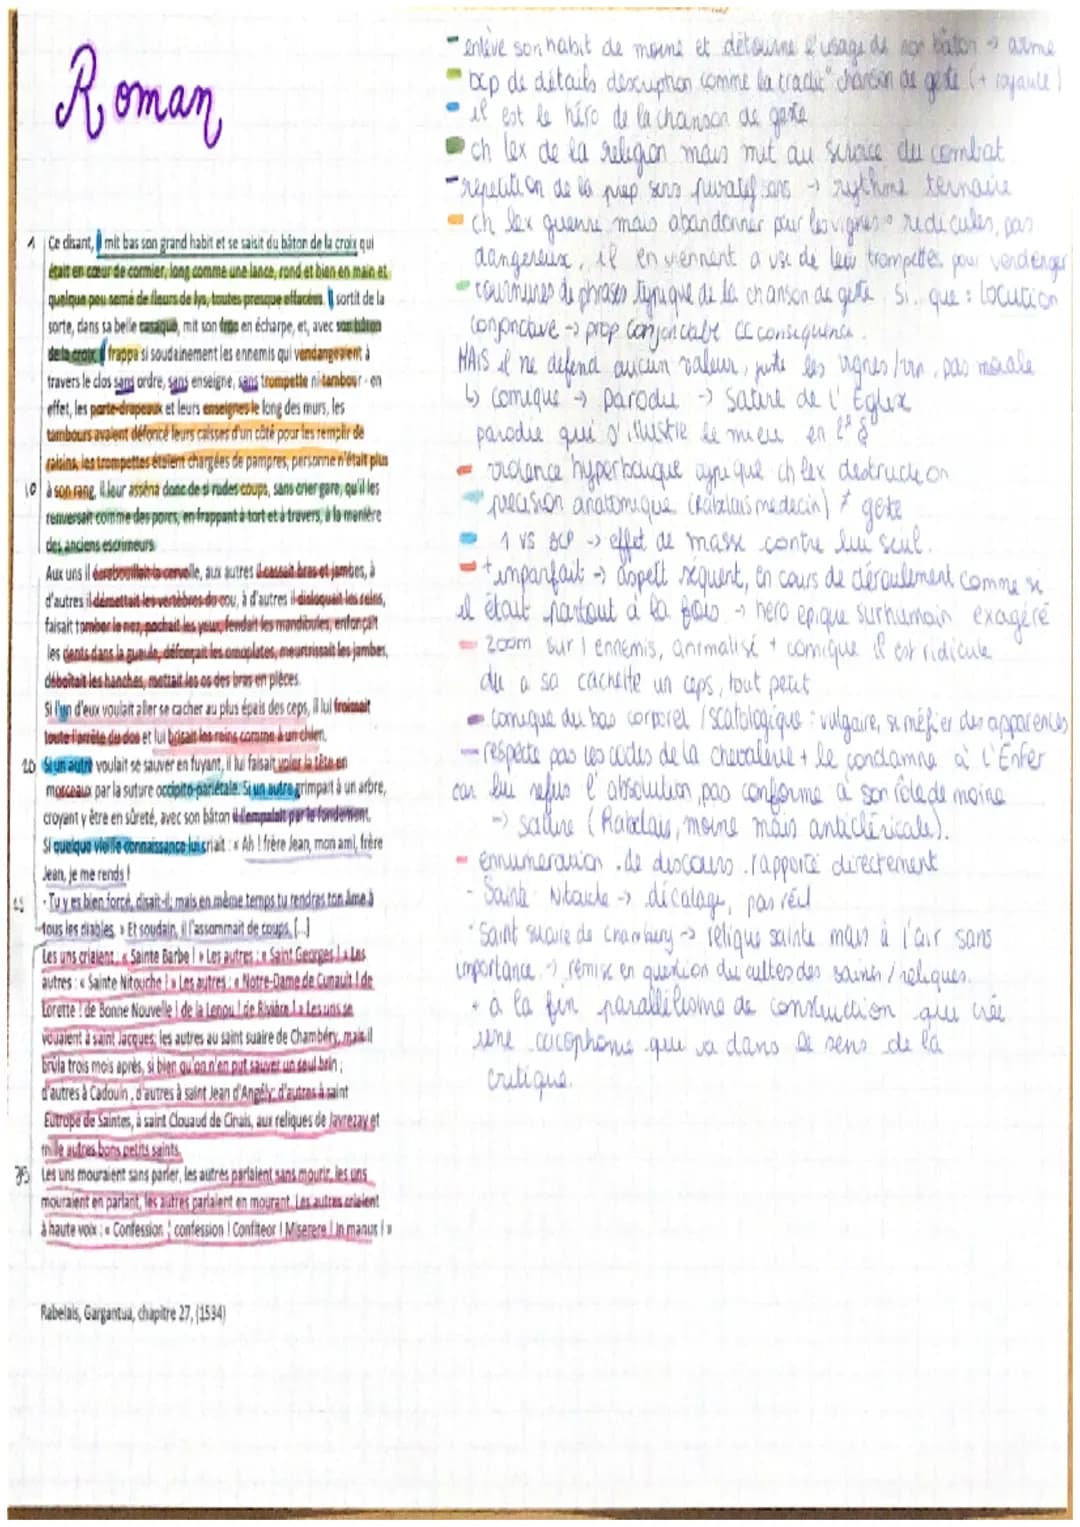 Roman
1 Ce disant, il mit bas son grand habit et se saisit du bâton de la croix qui
était en cœur de cormier, long comme une lance, rond et bien en main et
quelque peu semé de fleurs de lys, toutes presque effacées. Il sortit de la
sorte, dans sa belle casaque, mit son froc en écharpe, et, avec son bâton
de la croix, il frappa si soudainement les ennemis qui vendangeaient à
travers le clos sans ordre, sans enseigne, sans trompette ni tambour - en
effet, les porte-drapeaux et leurs enseignes le long des murs, les
tambours avaient défoncé leurs caisses d'un côté pour les remplir de
raisins, les trompettes étaient chargées de pampres, personne n'était plus
10 à son rang, il leur asséna donc de si rudes coups, sans crier gare, qu'il les
renversait comme des porcs, en frappant à tort et à travers, à la manière
des anciens escrimeurs.
Aux uns il écrabouillait la cervelle, aux autres il cassait bras et jambes, à
d'autres il démettait les vertèbres du cou, à d'autres il disloquait les reins,
faisait tomber le nez, pochait les yeux, fendait les mandibules, enfonçait
les dents dans la gueule, défonçait les omoplates, meurtrissait les jambes,
déboîtait les hanches, mettait les os des bras en pièces.
Si l'un d'eux voulait aller se cacher au plus épais des ceps, il lui froissait
toute l'arrête du dos et lui brisait les reins comme à un chien.
20 Si un autre voulait se sauver en fuyant, il lui faisait voler la tête en
morceaux par la suture occipito-pariétale. Si un autre grimpait à un arbre,
croyant y être en sûreté, avec son bâton il l'empalait par le fondement.
Si quelque vieille connaissance lui criait : « Ah ! frère Jean, mon ami, frère
Jean, je me rends !
- Tu y es bien forcé, disait-il; mais en même temps tu rendras ton âme à
tous les diables. » Et soudain, il l'assommait de coups. [...]
Les uns criaient : « Sainte Barbe ! » Les autres : « Saint Georges ! » Les
autres : « Sainte Nitouche ! » Les autres : « Notre-Dame de Cunault ! de
Lorette ! de Bonne Nouvelle ! de la Lenou ! de Rivière ! » Les uns se
vouaient à saint Jacques; les autres au saint suaire de Chambéry, mais il
brûla trois mois après, si bien qu'on n'en put sauver un seul brin ;
d'autres à Cadouin, d'autres à saint Jean d'Angély; d'autres à saint
Eutrope de Saintes, à saint Clouaud de Cinais, aux reliques de Javrezay et
mille autres bons petits saints.
Les uns mouraient sans parler, les autres parlaient sans mourir, les uns
mouraient en parlant, les autres parlaient en mourant. Les autres criaient
à haute voix : « Confession ! confession ! Confiteor ! Miserere ! In manus ! »
Rabelais, Gargantua, chapitre 27, (1534)
- enlève son habit de moine et détourne l'usage de son bâton → arme
bcp de détails description comme la tradit° chanson de geste (+ royauté)
il est le héro de la chanson de geste
ch lex de la religion mais mit au service du combat
- répétition de la prep sens privatif sans → rythme ternaire
ch lex guerre mais abandonner pour les vignes → ridicules, pas
dangereux, il en viennent a use de leur trompettes pour vendenger
tournures de phrases typique de la chanson de geste Si.. que : locution
conjonctive → prop conjonctive CC conséquence.
MAIS il ne défend aucun valeur, juste les vignes/vin, pas morale
↳ comique → parodie → Satire de l'Eglise
parodie qui s'illustre le mieux en 2e §
violence hyperbolique typique ch lex destruction
précision anatomique (Rabelais medecin) ≠ geste
1 VS BCP → effet de masse contre lui seul.
+ imparfait → aspect sequent, en cours de déroulement comme si
il était partout à la fois → héro épique surhumain exagéré
zoom sur 1 ennemis, animalisé + comique il est ridicule
du a sa cachette un ceps, tout petit
comique du bas corporel /scatologique : vulgaire, se méfier des apparences
respecte pas les codes de la chevalerie + le condamne à l'Enfer
car lui refus l'absolution, pas conforme à son rôle de moine
→ satire (Rabelais, moine mais anticléricale).
ennumeration de discours rapporté directement
- Sainte Nitouche → décalage, pas réel
• Saint suaire de Chambéry → relique sainte mais à l'air sans
importance → remise en question du cultes des saints / reliques.
+ à la fin parallélisme de construction qui crée
une cacophonie qui va dans le sens de la
critique.